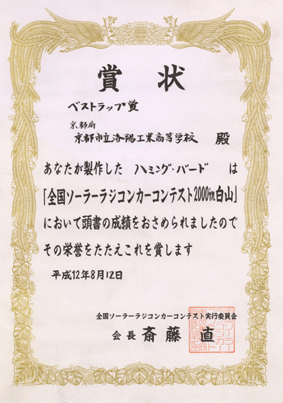 賞状
ベストラップ賞
京都府
京都市立洛陽工業高等学校 殿
あなたが製作した ハミング・バード は
「全国ソーラーラジコンカーコンテスト2000in白山」
において頭書の成績をおさめられましたので
その栄誉をたたえこれを賞します
平成12年8月12日
全国ソーラーラジコンカーコンテスト実行委員会
会長 斎藤 直